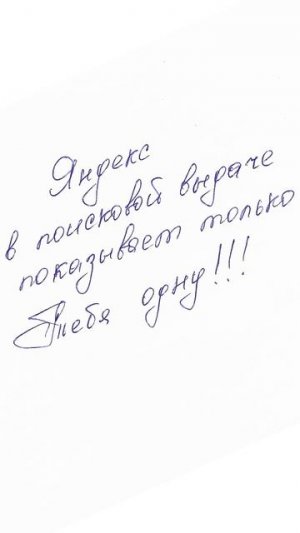 Яндекс
в поисковой выдаче
показывает только
Тебя одну!!!